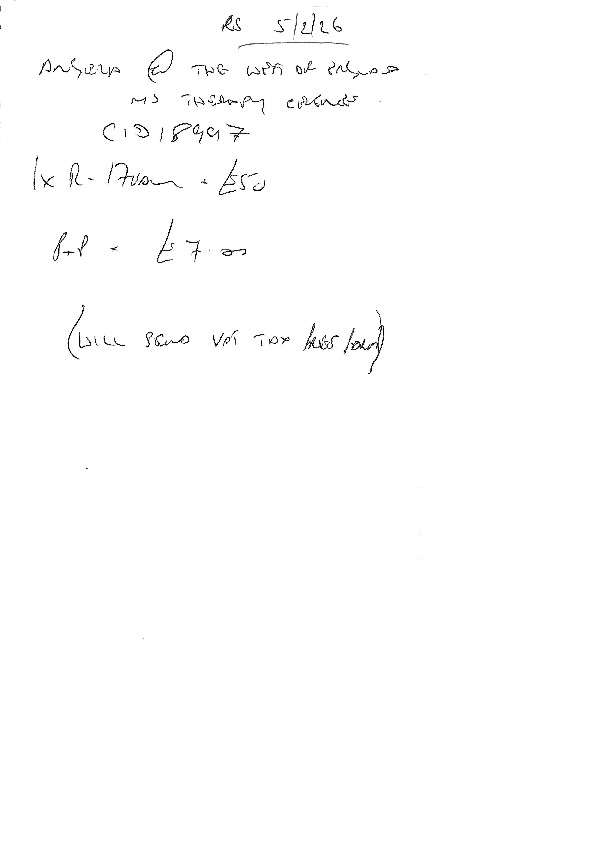 RS 5/2/26
ANGELA @ THE WEST OF ENGLAND
MS THERAPY CENTRE
CID18997
1x R- = £50
P+P = £7.00
(WILL SEND VAT TAX FREE FORM)